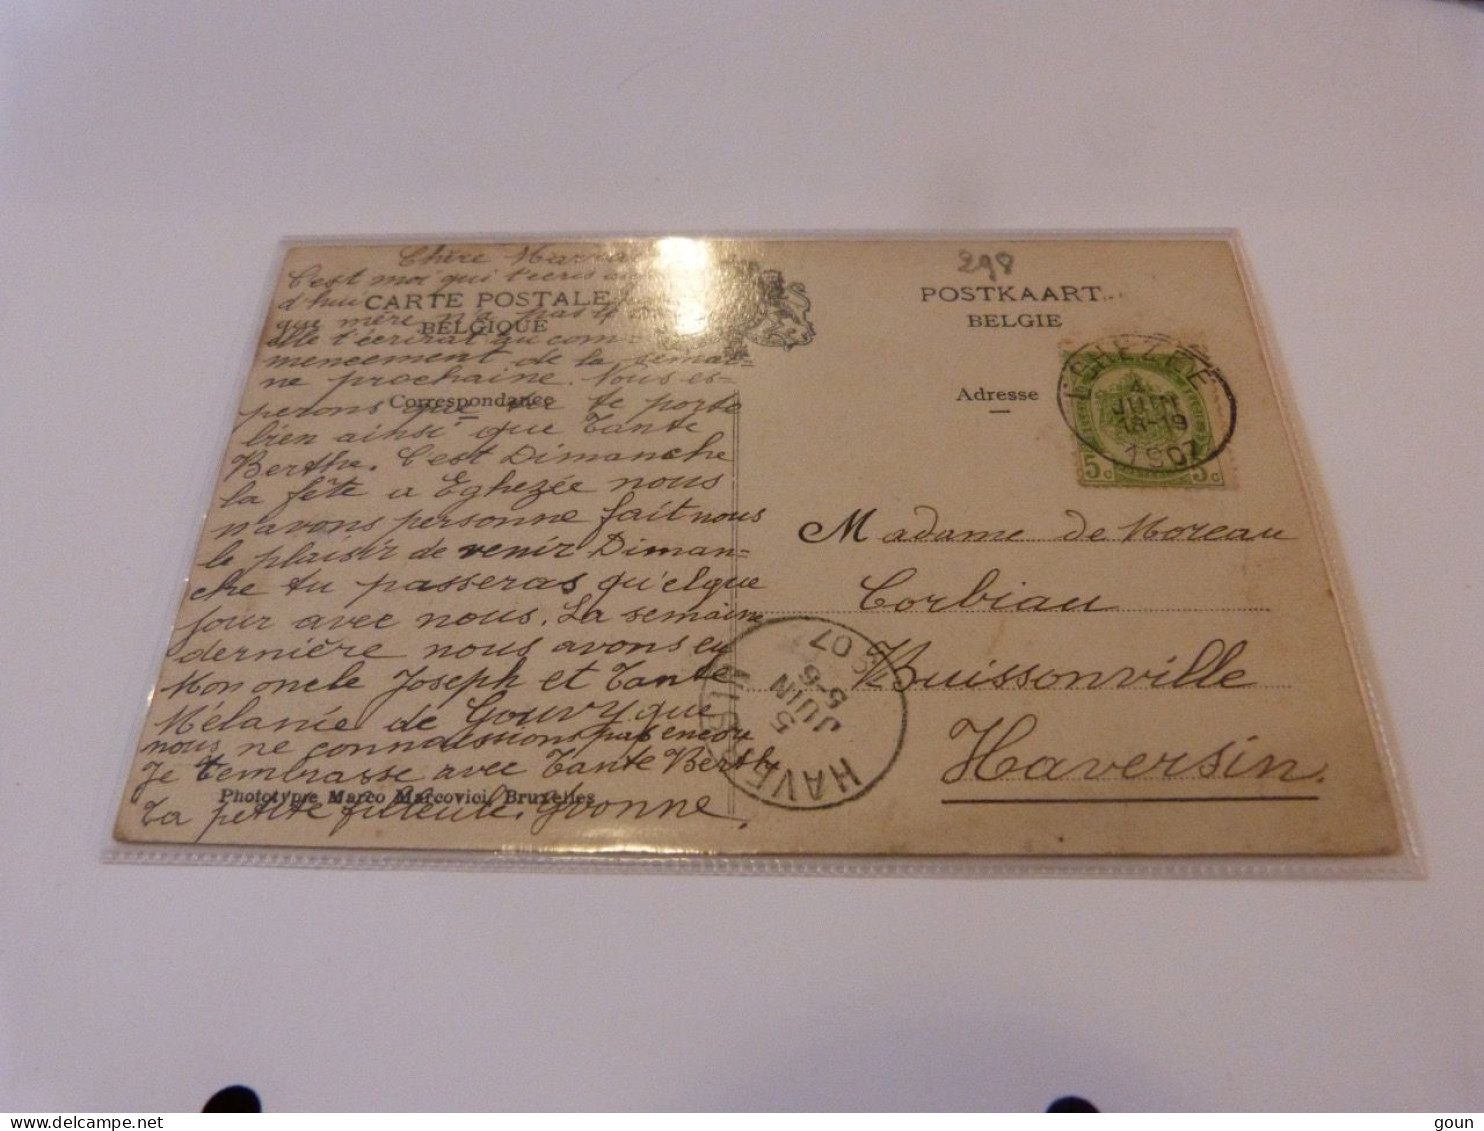 Chère Marra
C'est moi qui t'ecris au
d'hui
CARTE POSTALE
que mère n'a pas
BELGIQUE
elle t'écrirat au com
mencement de la semai=
ne prochaine. Nous es-
Correspondance
perons que tu te porte
bien ainsi que Tante
Berthe. C'est Dimanche
la fête a Eghezée nous
n'avons personne fait nous
le plaisir de venir Diman=
che tu passeras qu'elque
jour avec nous. La semaine
dernière nous avons eu
Mon oncle Joseph et Tante
Mélanie de Gouvy que
nous ne connaissions pas encor
Je t'embrasse avec Tante Berthe
Phototypie Marco Marcovici, Bruxelles
Ta petite filleule. Yvonne.
298
POSTKAART
BELGIE
Adresse
EGHEZEE
4
JUIN
18-19
1907
5c 5c
Madame de Moreau
Corbiau
Buissonville
Haversin.
HAVERSIN
5
JUIN
5-6
07
goun